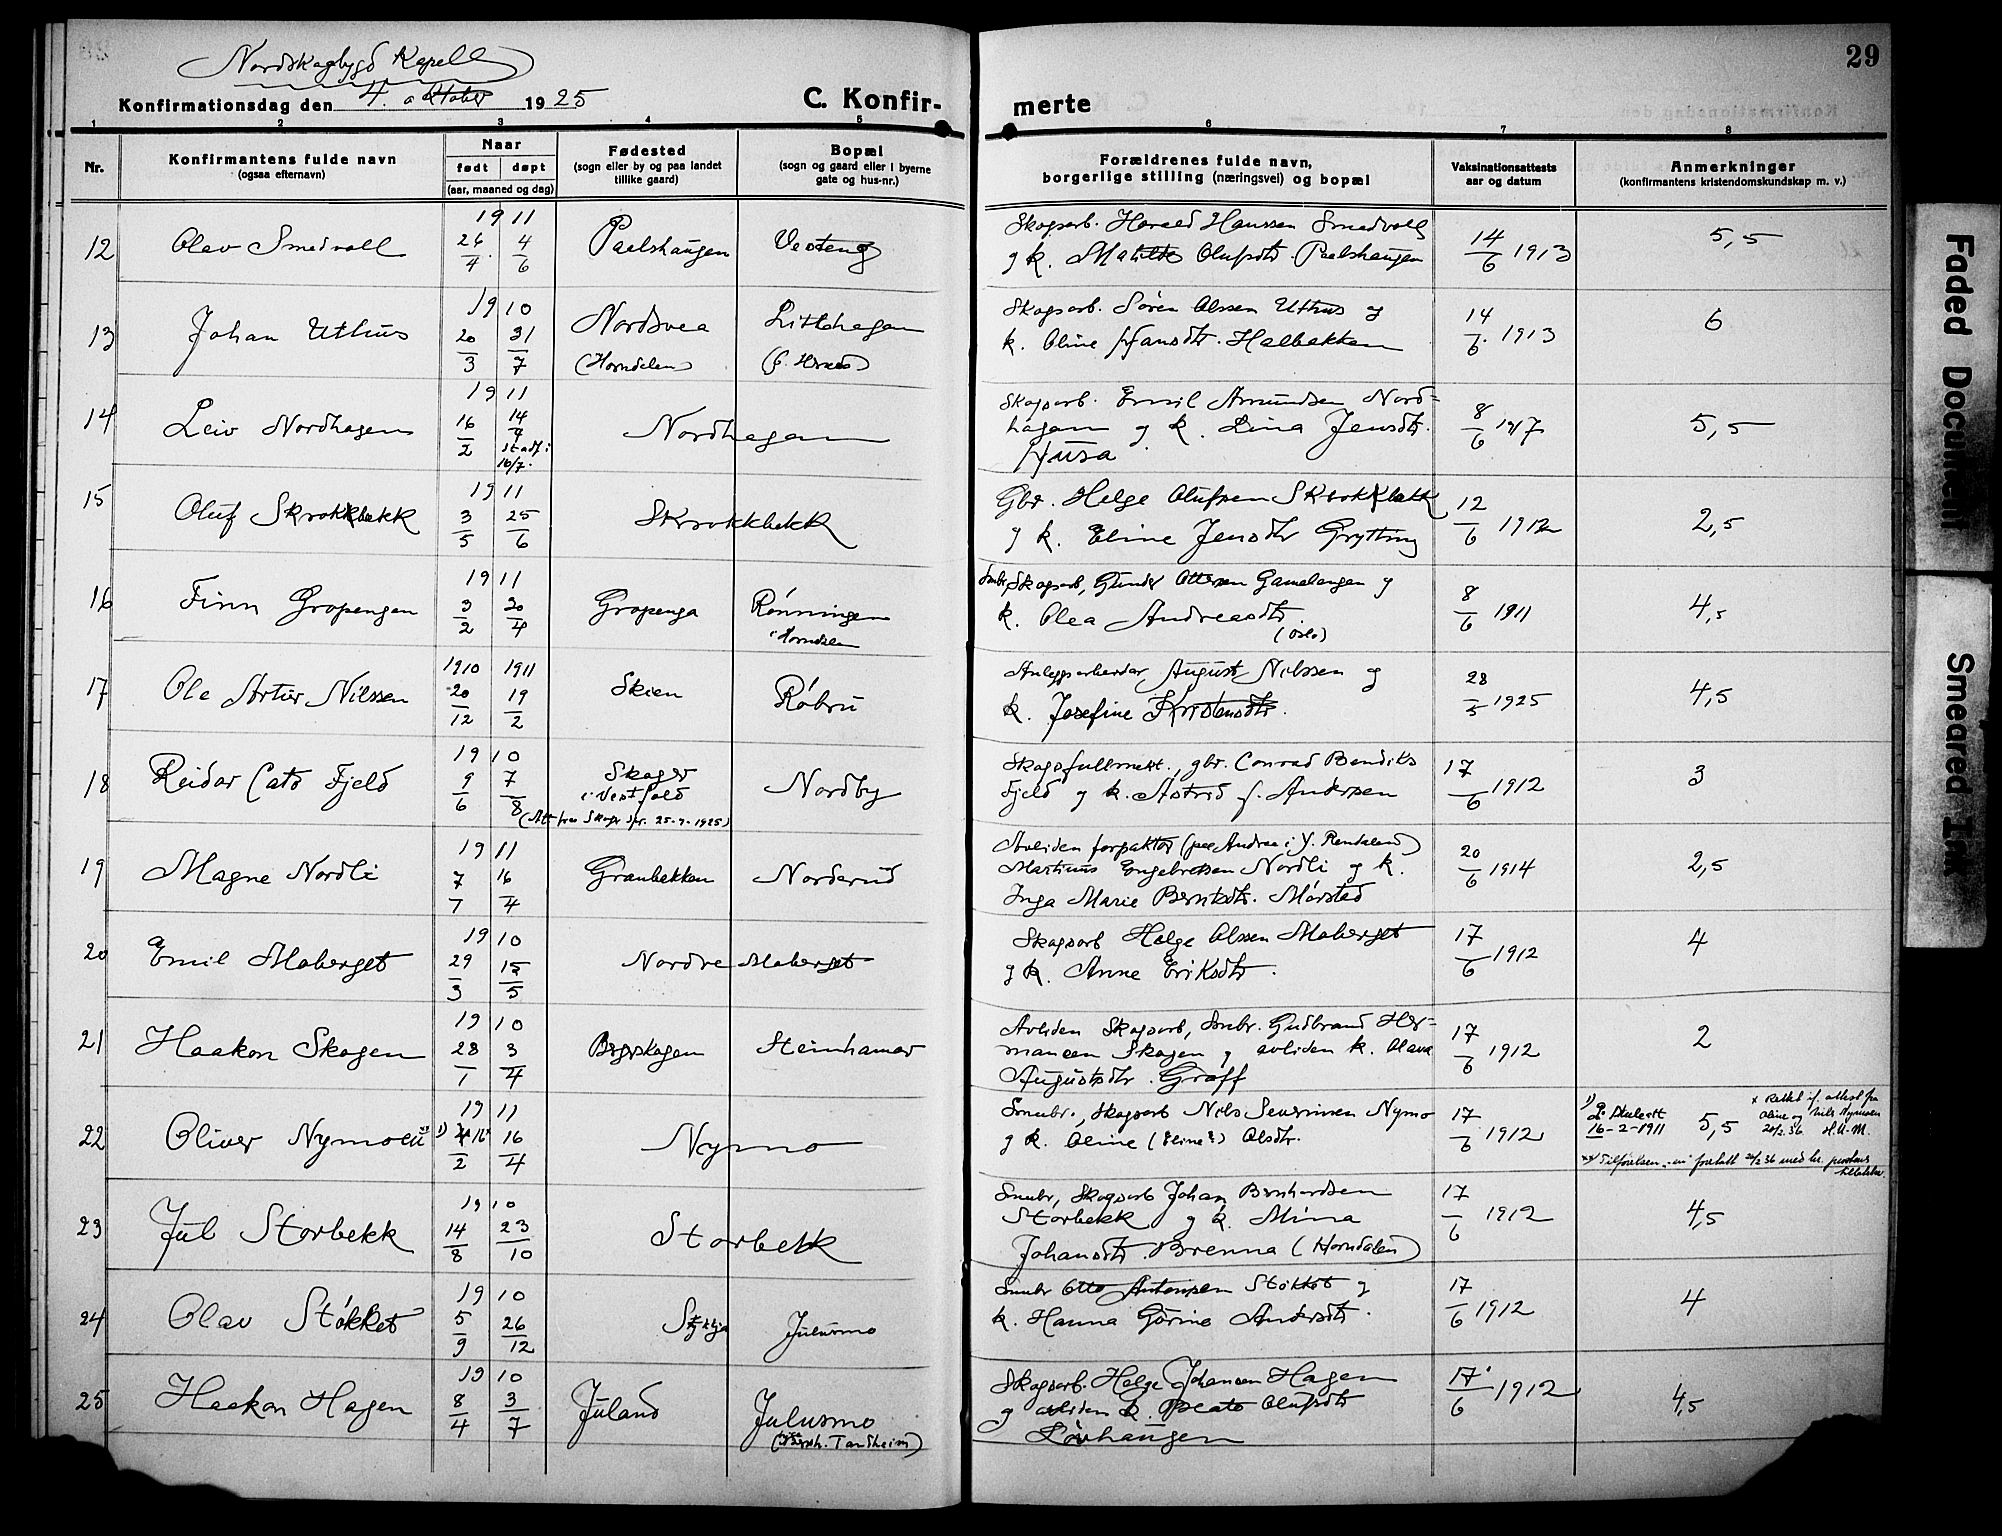 29
Nordskogbygd Kapell
Konfirmationsdag den 4. oktober 1925
C. Konfir-merte
1 2 3 4 5 6 7 8
Nr.
Konfirmantens fulde navn
(ogsaa efternavn)
Naar
født døpt
(aar, maaned og dag)
Fødested
(sogn eller by og paa landet
tillike gaard)
Bopæl
(sogn og gaard eller i byerne
gate og hus-nr.)
Forældrenes fulde navn,
borgerlige stilling (næringsvei) og bopæl
Vaksinationsattests
aar og datum
Anmerkninger
(konfirmantens kristendomskundskap m. v.)
12 Olav Smedvoll 1911 26/4 4/6 Paalshaugen Vesteng
Skogsarb. Harald Hanssen Smedvoll
og k. Matilde Olufsdtr. Paalshaugen 14/6 1913 5,5
13 Johan Uthus 1910 20/3 31/7 Nordsvea (Horndalen) Littlehagen
Skogsarb. Søren Olssen Uthus og
k. Oline Hansdtr. Halbakken 14/6 1913 6
14 Leiv Nordhagen 1911 16/2 14/4 stadf. 16/7. Nordhagen
Skogsarb. Emil Amundsen Nord-
hagen og k. Lina Jensdtr.
Husa 8/6 1917 5,5
15 Oluf Skrokkbekk 1911 3/5 25/6 Skrokkbekk
Gbr. Helge Olufsen Skrokkbekk
og k. Eline Jensdtr Grytting 12/6 1912 2,5
16 Finn Gropengen 1911 3/2 20/4 Gropenga Rønningen
i Horndalen
Smbr, Skogsarb, Gunder Ottersen Gamelengen og
k. Olea Andreasdtr.
(Oslo) 8/6 1911 4,5
17 Ole Artur Nilssen 1910 20/12 1911 19/2 Skien Røbru
Anleggsarbeider August Nilssen og
k. Josefine Kristensdtr. 28/5 1925 4,5
18 Reidar Cato Fjeld 1910 9/6 7/8 Skoger
i Vestfold Nordby
(Att. fra Skoger spr. 25-7-1925)
Skogsfullmekt., gbr. Conrad Bendiks
Fjeld og k. Astrid f. Andersen 17/6 1912 3
19 Magne Nordli 1911 7/7 16/4 Granbekken Norderud
Avliden forpakter (paa Andraa i Y. Rendalen)
Martinus Engebretsen Nordli og k.
Inga Marie Berntsdtr. Mørstad 20/6 1914 2,5
20 Emil Moberget 1910 29/3 15/5 Nordre Moberget
Skogsarb Helge Olssen Moberget
og k. Anne Eriksdtr. 17/6 1912 4
21 Haakon Skogen 1910 28/1 3/4 Bergskogen Steinhamar
Avliden Skogsarb, Smbr. Gudbrand Her-
mansen Skogen og avliden k. Olava
Augustsdtr. Graff 17/6 1912 2
22 Oliver Nymoen 1911 16/2 16/4 Nymo
Smbr., Skogsarb Nils Severinsen Nymo
og k. Oline (Eline?) Olsdtr. 17/6 1912 5,5
16-2-1911
x Rettet if. attest fra
Oline og Nils Nymoen
20/2.36. H.U.M.
xx/ Tilføielsen "en" foretatt 20/2 36 med hr. prostens
tillatelse.
23 Jul Storbekk 1910 14/8 23/10 Storbekk
Smbr, Skogsarb Johan Bernhardsen
Storbekk og k. Mina
Johansdtr. Brenna (Horndalen) 17/6 1912 4,5
24 Olav Støkket 1910 5/9 26/12 Julusmo
Smbr Otto Antonsen Støkket og
k. Hanna Gørine Andersdtr. 17/6 1912 4
25 Haakon Hagen 1910 8/4 3/7 Juland Julusmo
Skogsarb. Helge Johansen Hagen
og avliden k. Beate Olufsdtr
Løvhaugen 17/6 1912 4,5
Faded Document
Smeared Ink